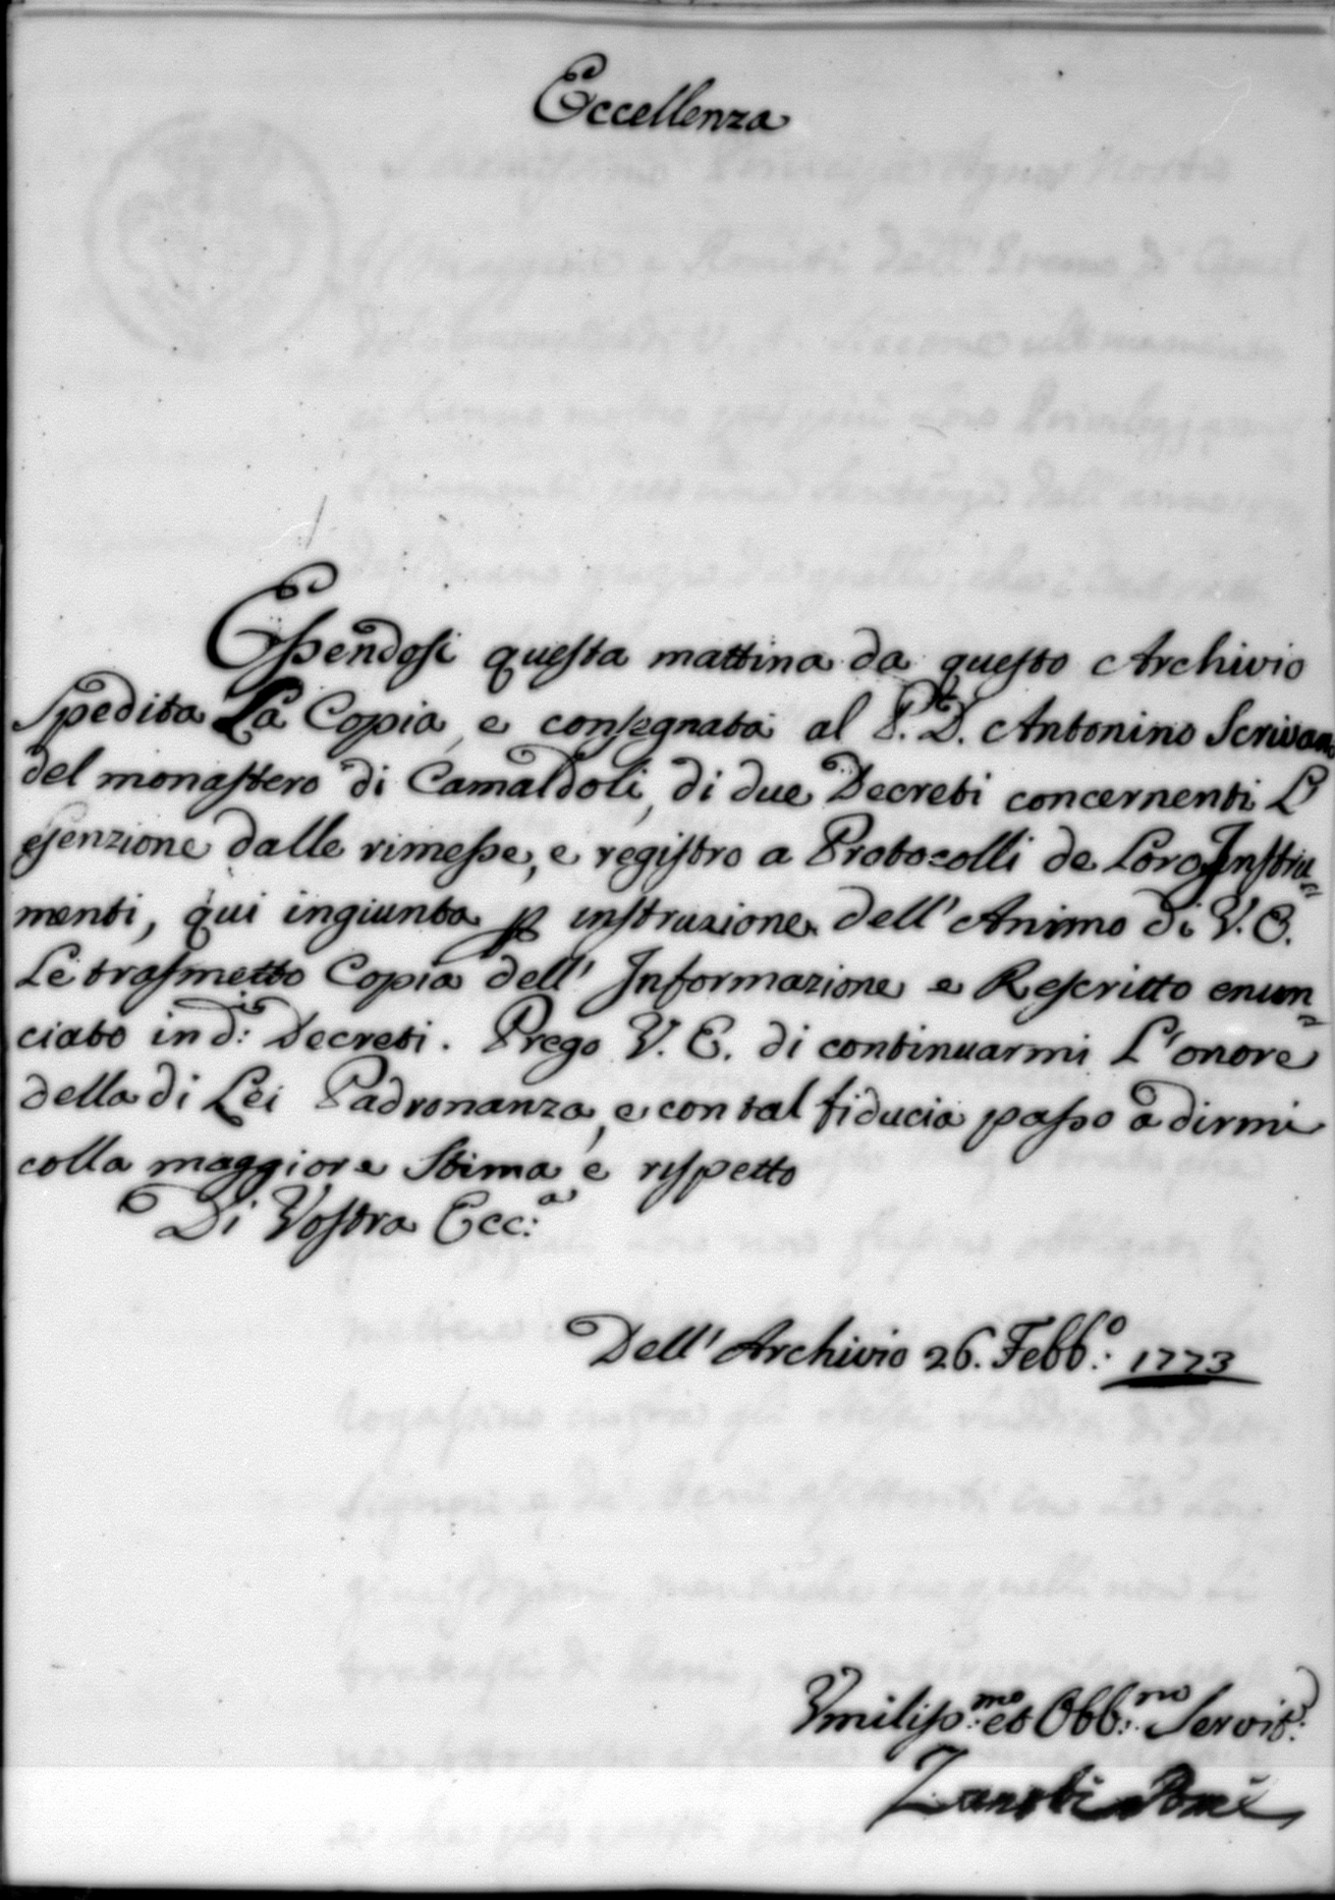 Eccellenza
Essendosi questa mattina da questo Archivio
spedita La Copia, e consegnata al P. D. Antonino Scrivano
del monastero di Camaldoli, di due Decreti concernenti L'
esenzione dalle rimesse, e registro a Protocolli de Loro Instru=
menti, qui ingiunta p instruzione dell' Animo di V. E.
Le trasmetto Copia dell' Informazione e Rescritto enun=
ciato in d:i Decreti. Prego V. E. di continuarmi L'onore
della di Lei Padronanza, e con tal fiducia passo à dirmi
colla maggiore stima e rispetto
Di Vostra Ecc:a
Dell' Archivio 26. Febb:o 1773
Vmiliss:mo et Obb:mo Servit:
Zanobi